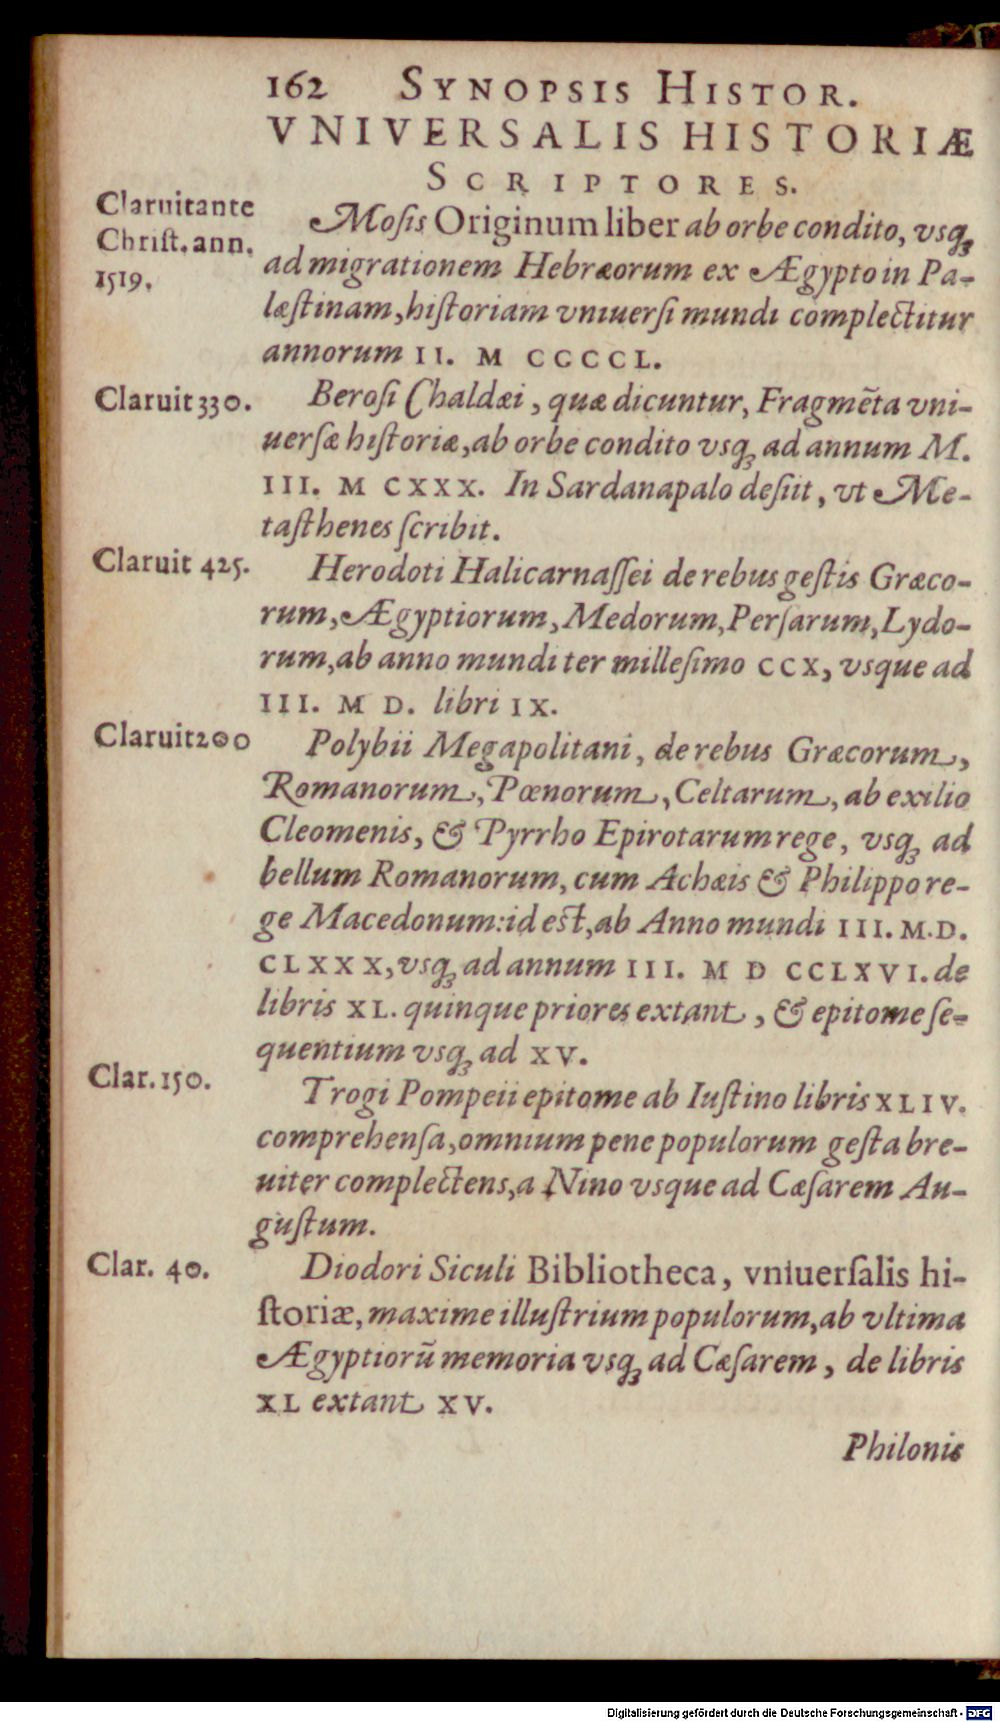 162 SYNOPSIS HISTOR.
VNIVERSALIS HISTORIÆ
SCRIPTORES.
Claruit ante
Christ. ann.
1519.
Mosis Originum liber ab orbe condito, vsq;
ad migrationem Hebræorum ex Ægypto in Pa-
læstinam, historiam vniuersi mundi complectitur
annorum II. M CCCCL.
Claruit 330.
Berosi Chaldæi, quæ dicuntur, Fragmẽta vni-
uersæ historiæ, ab orbe condito vsq; ad annum M.
III. M CXXX. In Sardanapalo desiit, vt Me-
tasthenes scribit.
Claruit 425.
Herodoti Halicarnassei de rebus gestis Græco-
rum, Ægyptiorum, Medorum, Persarum, Lydo-
rum, ab anno mundi ter millesimo CCX, vsque ad
III. M D. libri IX.
Claruit 200
Polybii Megapolitani, de rebus Græcorum,
Romanorum, Pœnorum, Celtarum, ab exilio
Cleomenis, & Pyrrho Epirotarum rege, vsq; ad
bellum Romanorum, cum Achæis & Philippo re-
ge Macedonum: id est, ab Anno mundi III. M.D.
CLXXX, vsq; ad annum III. M D CCLXVI. de
libris XL. quinque priores extant, & epitome se-
quentium vsq; ad XV.
Clar. 150.
Trogi Pompeii epitome ab Iustino libris XLIV.
comprehensa, omnium pene populorum gesta bre-
uiter complectens, a Nino vsque ad Cæsarem Au-
gustum.
Clar. 40.
Diodori Siculi Bibliotheca, vniuersalis hi-
storiæ, maxime illustrium populorum, ab vltima
Ægyptiorũ memoria vsq; ad Cæsarem, de libris
XL extant XV.
Philonis
Digitalisierung gefördert durch die Deutsche Forschungsgemeinschaft - DFG